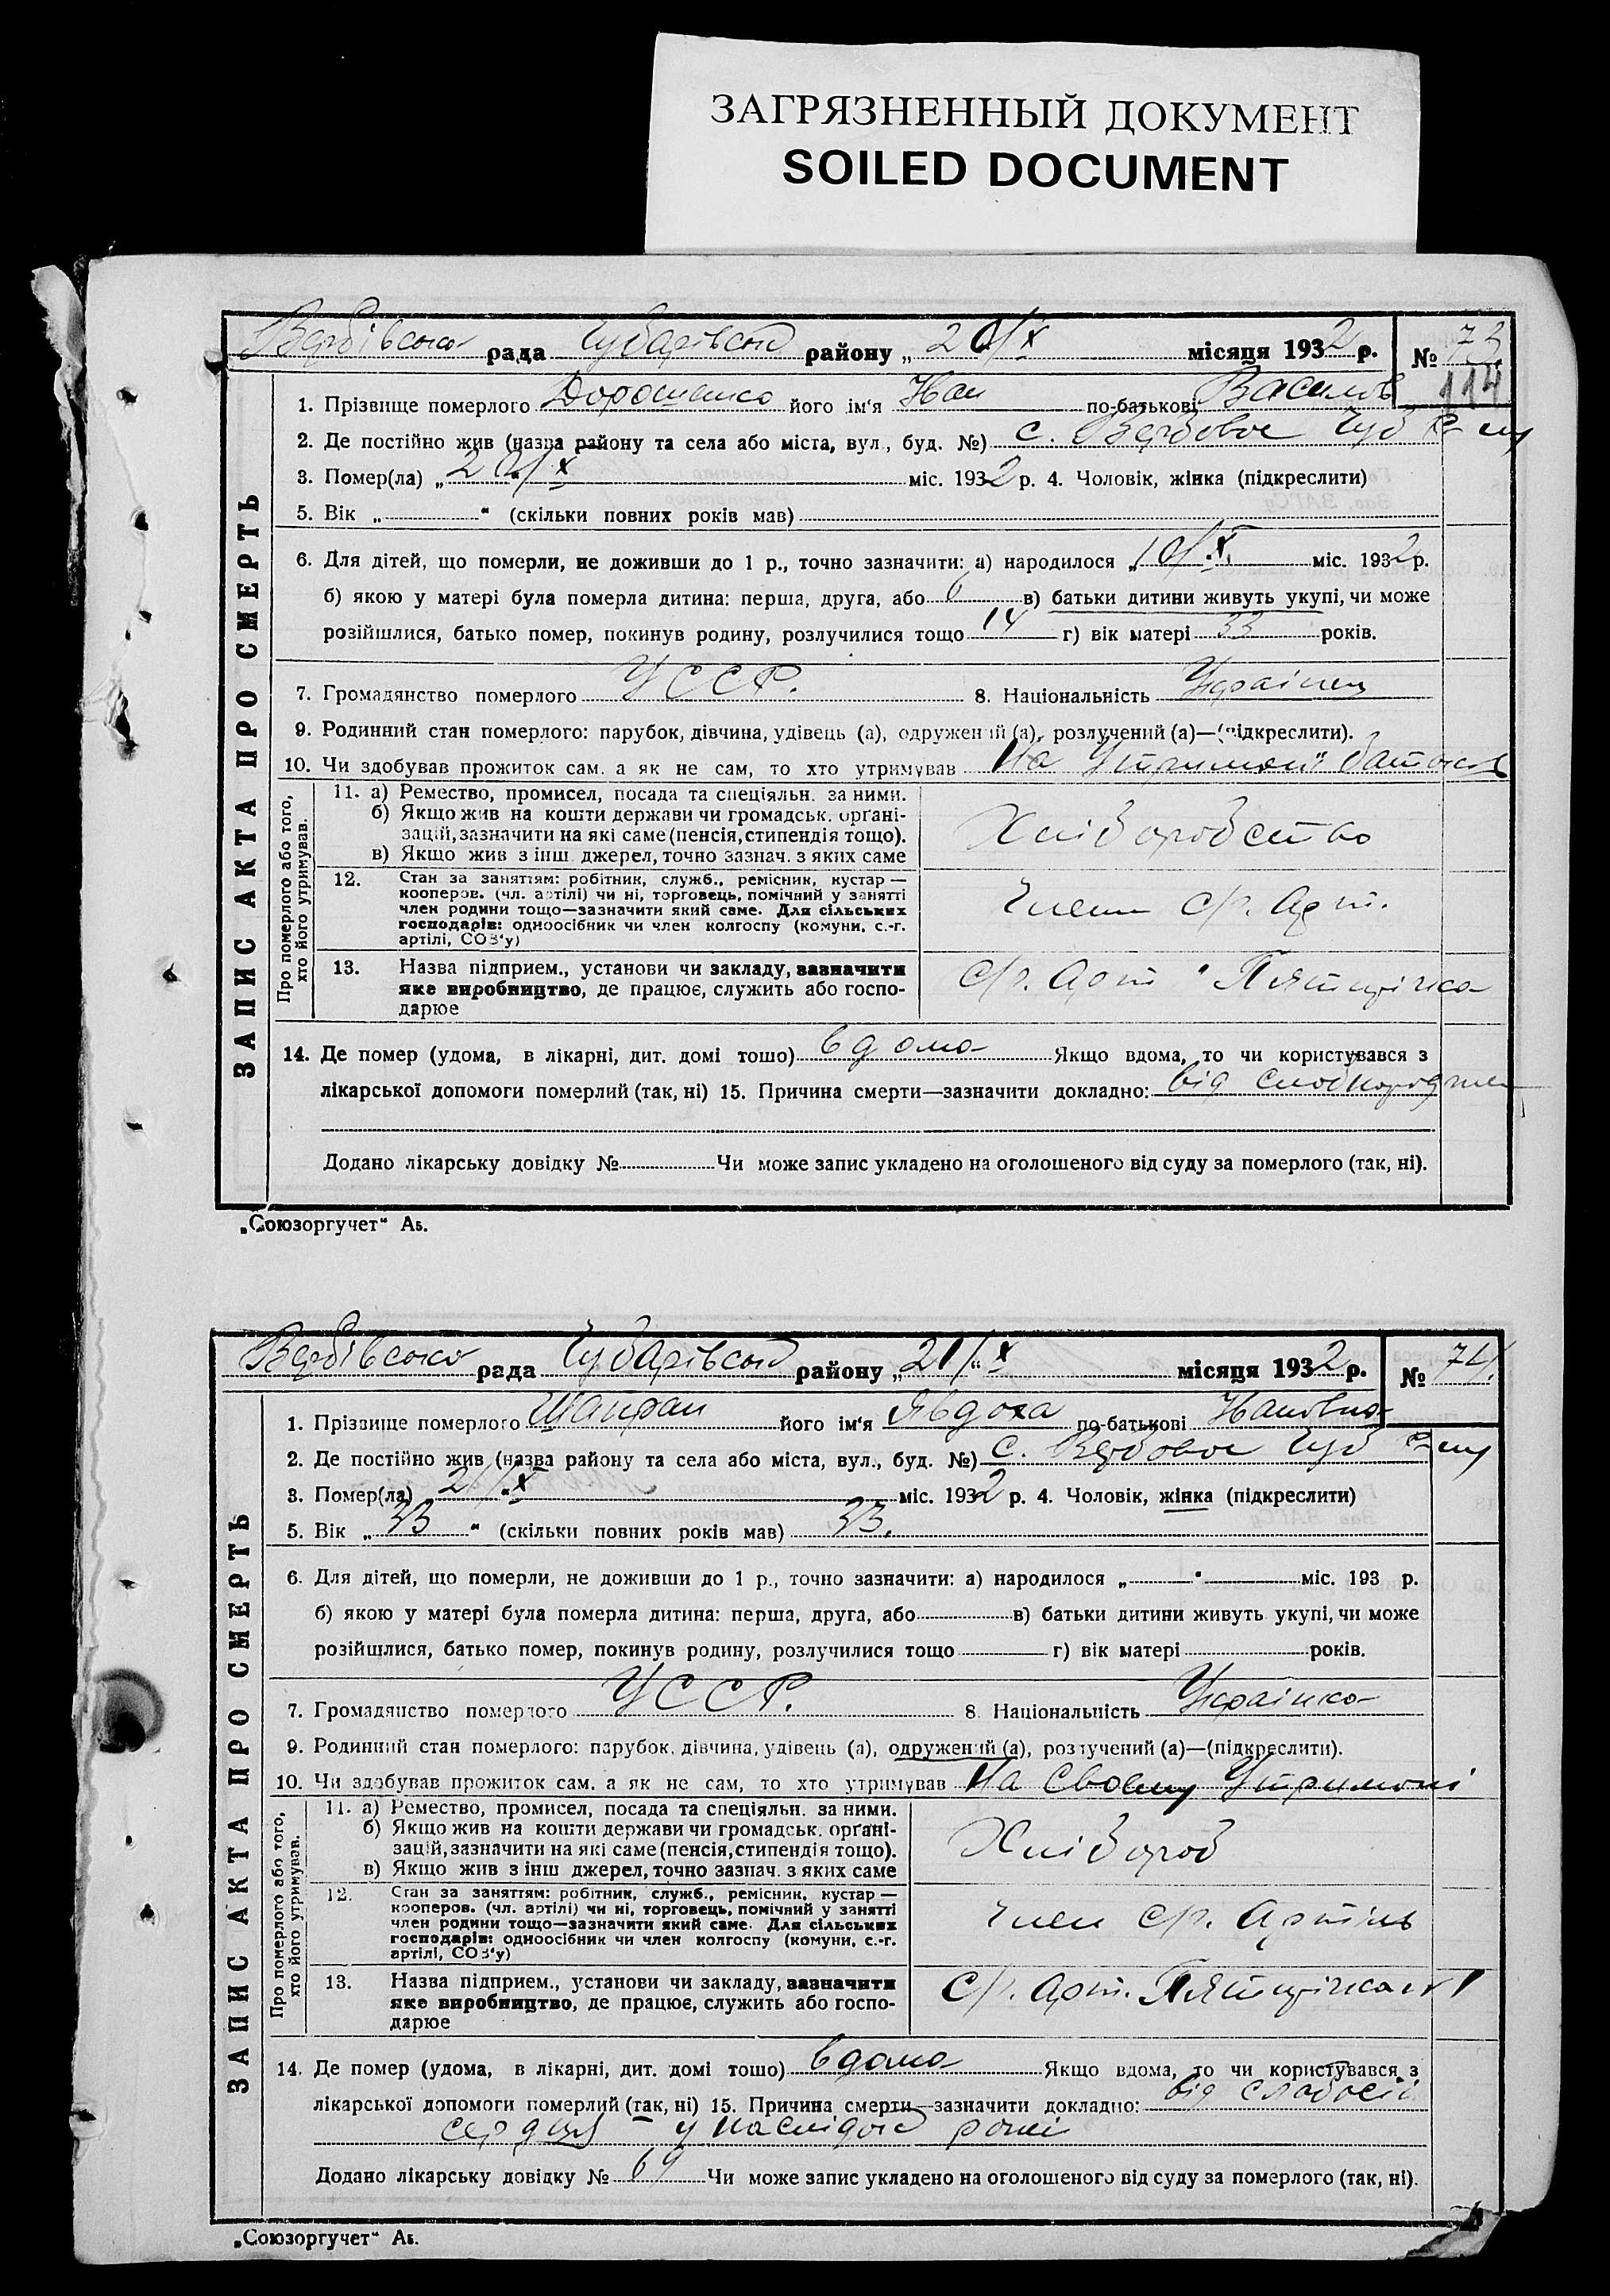 ЗАГРЯЗНЕННЫЙ ДОКУМЕНТ
SOILED DOCUMENT
Вербівська рада Чубарівськ району „ 20/X місяця 1932 р. № 73
114
ЗАПИС АКТА ПРО СМЕРТЬ
1. Прізвище померлого Дорошенко його ім'я Іван по-батькові Василів
2. Де постійно жив (назва району та села або міста, вул., буд. №) с. Вербове Чуб р-ну
3. Помер(ла) „ 20/X міс. 1932 р. 4. Чоловік, жінка (підкреслити)
5. Вік „ “ (скільки повних років мав)
6. Для дітей, що померли, не доживши до 1 р., точно зазначити: а) народилося „ 10/X. міс. 1932 р.
б) якою у матері була померла дитина: перша, друга, або 6 в) батьки дитини живуть укупі, чи може
розійшлися, батько помер, покинув родину, розлучилися тощо 14 г) вік матері 33 років.
7. Громадянство померлого УССР. 8. Національність Українец
9. Родинний стан померлого: парубок, дівчина, удівець (а), одружений (а), розлучений (а)—(підкреслити).
10. Чи здобував прожиток сам, а як не сам, то хто утримував На Утриман батьків
Про померлого або того, хто його утримував.
11. а) Ремество, промисел, посада та спеціяльн. за ними.
б) Якщо жив на кошти держави чи громадськ. орґані-
зацій, зазначити на які саме (пенсія, стипендія тощо).
в) Якщо жив з інш джерел, точно зазнач. з яких саме
Хліборобство
12. Стан за заняттям: робітник, служб., ремісник, кустар —
кооперов. (чл. артілі) чи ні, торговець, помічний у занятті
член родини тощо—зазначити який саме. Для сільських
господарів: одноосібник чи член колгоспу (комуни, с.-г.
артілі, СОЗ'у)
Член с/г. Арт.
13. Назва підприєм., установи чи закладу, зазначити
яке виробництво, де працює, служить або госпо-
дарює
С/г. Арт "Пятирічка
14. Де помер (удома, в лікарні, дит. домі тошо) вдома Якщо вдома, то чи користувався з
лікарської допомоги померлий (так, ні) 15. Причина смерти—зазначити докладно: від
Додано лікарську довідку № Чи може запис укладено на оголошеного від суду за померлого (так, ні).
„Союзоргучет“ Аб.
Вербівська рада Чубарівськ району „ 21/X місяця 1932 р. № 74.
ЗАПИС АКТА ПРО СМЕРТЬ
1. Прізвище померлого Шапран його ім'я Явдоха по-батькові Івановна
2. Де постійно жив (назва району та села або міста, вул., буд. №) с. Вербове Чуб р-ну
3. Помер(ла) 21/X міс. 1932 р. 4. Чоловік, жінка (підкреслити)
5. Вік „ 33 “ (скільки повних років мав) 33.
6. Для дітей, що померли, не доживши до 1 р., точно зазначити: а) народилося „ “ міс. 193 р.
б) якою у матері була померла дитина: перша, друга, або в) батьки дитини живуть укупі, чи може
розійшлися, батько помер, покинув родину, розлучилися тощо г) вік матері років.
7. Громадянство померлого УССР. 8. Національність Українка
9. Родинний стан померлого: парубок, дівчина, удівець (а), одружений (а), розлучений (а)—(підкреслити).
10. Чи здобував прожиток сам, а як не сам, то хто утримував На своєму Утримані
Про померлого або того, хто його утримував.
11. а) Ремество, промисел, посада та спеціяльн. за ними.
б) Якщо жив на кошти держави чи громадськ. орґані-
зацій, зазначити на які саме (пенсія, стипендія тощо).
в) Якщо жив з інш джерел, точно зазнач. з яких саме
Хлібороб
12. Стан за заняттям: робітник, служб., ремісник, кустар —
кооперов. (чл. артілі) чи ні, торговець, помічний у занятті
член родини тощо—зазначити який саме. Для сільських
господарів: одноосібник чи член колгоспу (комуни, с.-г.
артілі, СОЗ'у)
Член с/г. Артіль
13. Назва підприєм., установи чи закладу, зазначити
яке виробництво, де працює, служить або госпо-
дарює
С/г. Арт. Пятирічка
14. Де помер (удома, в лікарні, дит. домі тошо) вдома Якщо вдома, то чи користувався з
лікарської допомоги померлий (так, ні) 15. Причина смерти—зазначити докладно: від слабости
сердця у наслідок
Додано лікарську довідку № 69 Чи може запис укладено на оголошеного від суду за померлого (так, ні).
„Союзоргучет“ Аб.